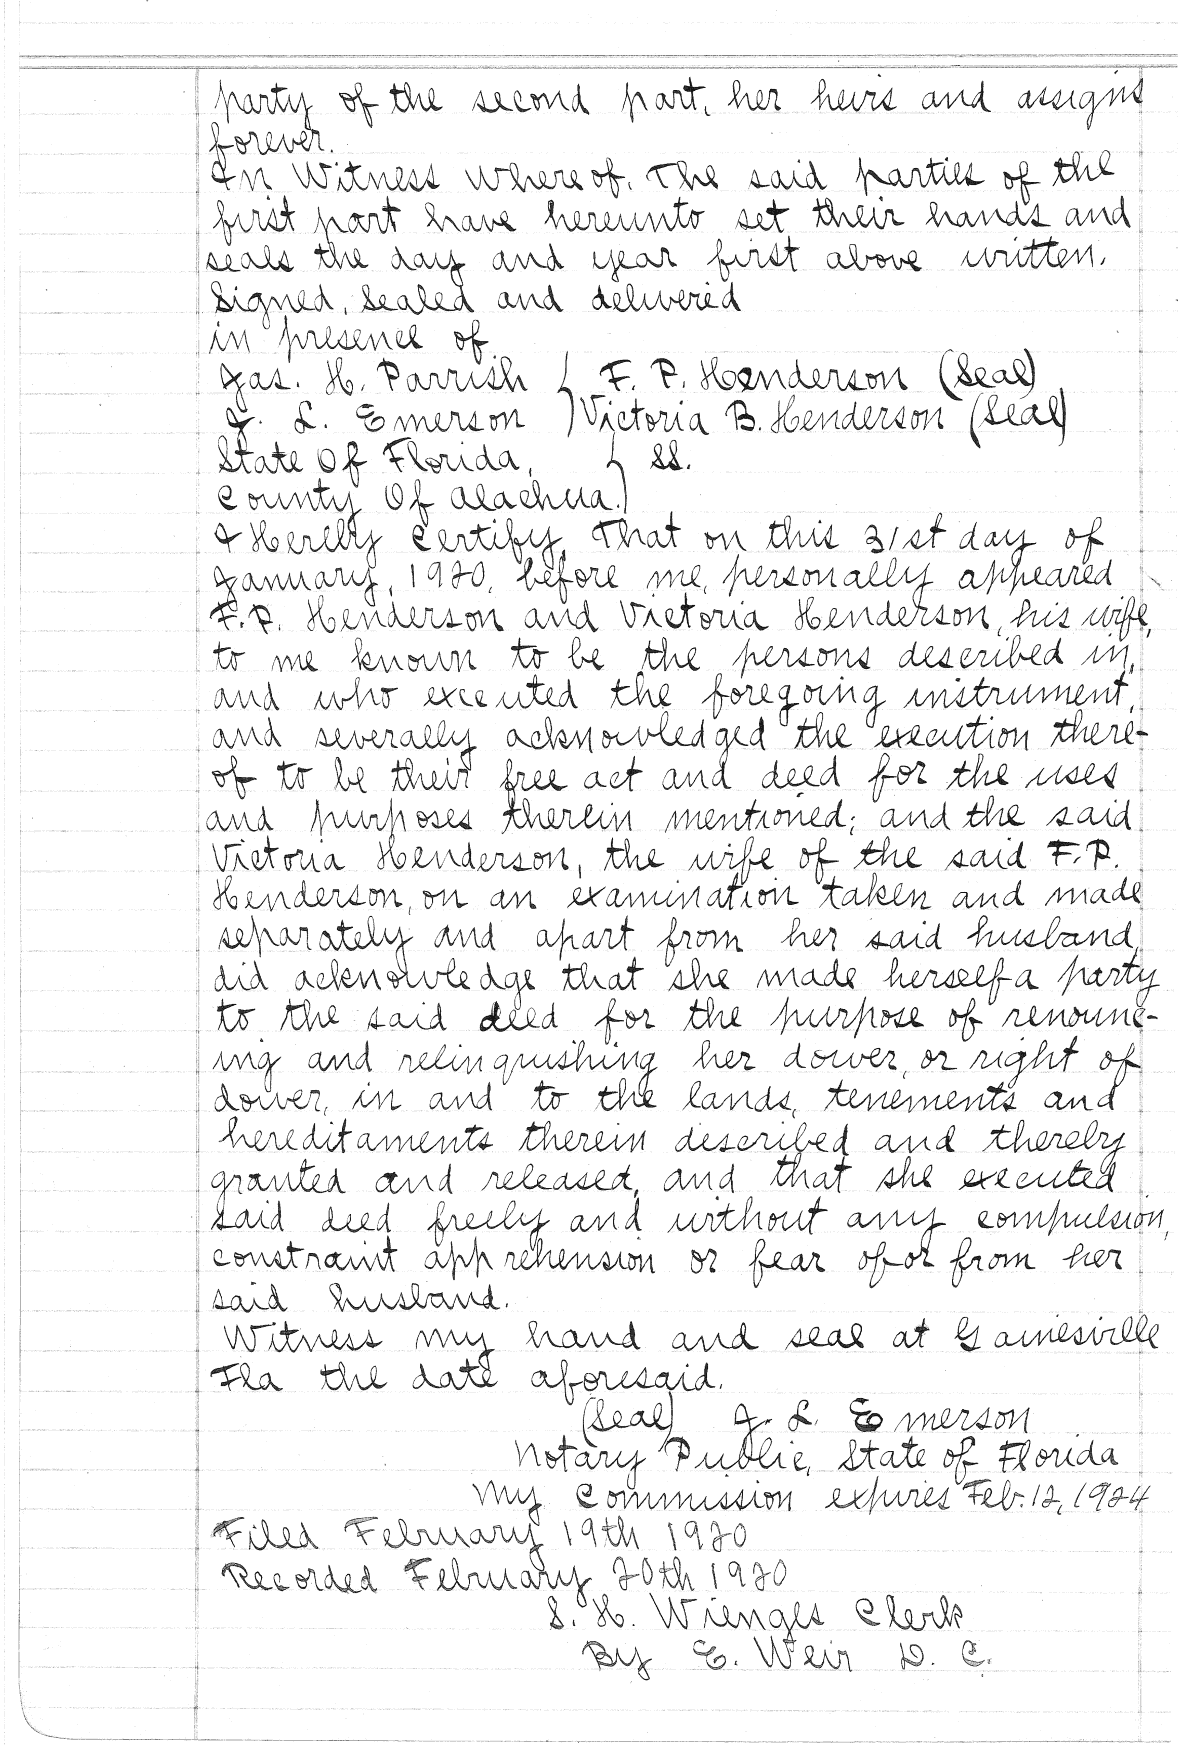 party of the second part, her heirs and assigns
forever.
In Witness Whereof, The said parties of the
first part have hereunto set their hands and
seals the day and year first above written.
Signed, Sealed and delivered
in presence of
Jas. H. Parrish } F. P. Henderson (Seal)
J. L. Emerson ) Victoria B. Henderson (Seal)
State Of Florida, } SS.
County Of Alachua.)
I Hereby Certify, That on this 31st day of
January, 1920, before me, personally appeared
F.P. Henderson and Victoria Henderson, his wife,
to me known to be the persons described in,
and who executed the foregoing instrument,
and severally acknowledged the execution there-
of to be their free act and deed for the uses
and purposes therein mentioned; and the said
Victoria Henderson, the wife of the said F.P.
Henderson, on an examination taken and made
separately and apart from her said husband,
did acknowledge that she made herself a party
to the said deed for the purpose of renounc-
ing and relinquishing her dower, or right of
dower, in and to the lands, tenements and
hereditaments therein described and thereby
granted and released, and that she executed
said deed freely and without any compulsion,
constraint apprehension or fear of or from her
said husband.
Witness my hand and seal at Gainesville
Fla the date aforesaid.
(Seal) J. L. Emerson
Notary Public, State of Florida
My Commission expires Feb. 12, 1924
Filed February 19th 1920
Recorded February 20th 1920
S. H. Wienges Clerk
By E. Weir D. C.